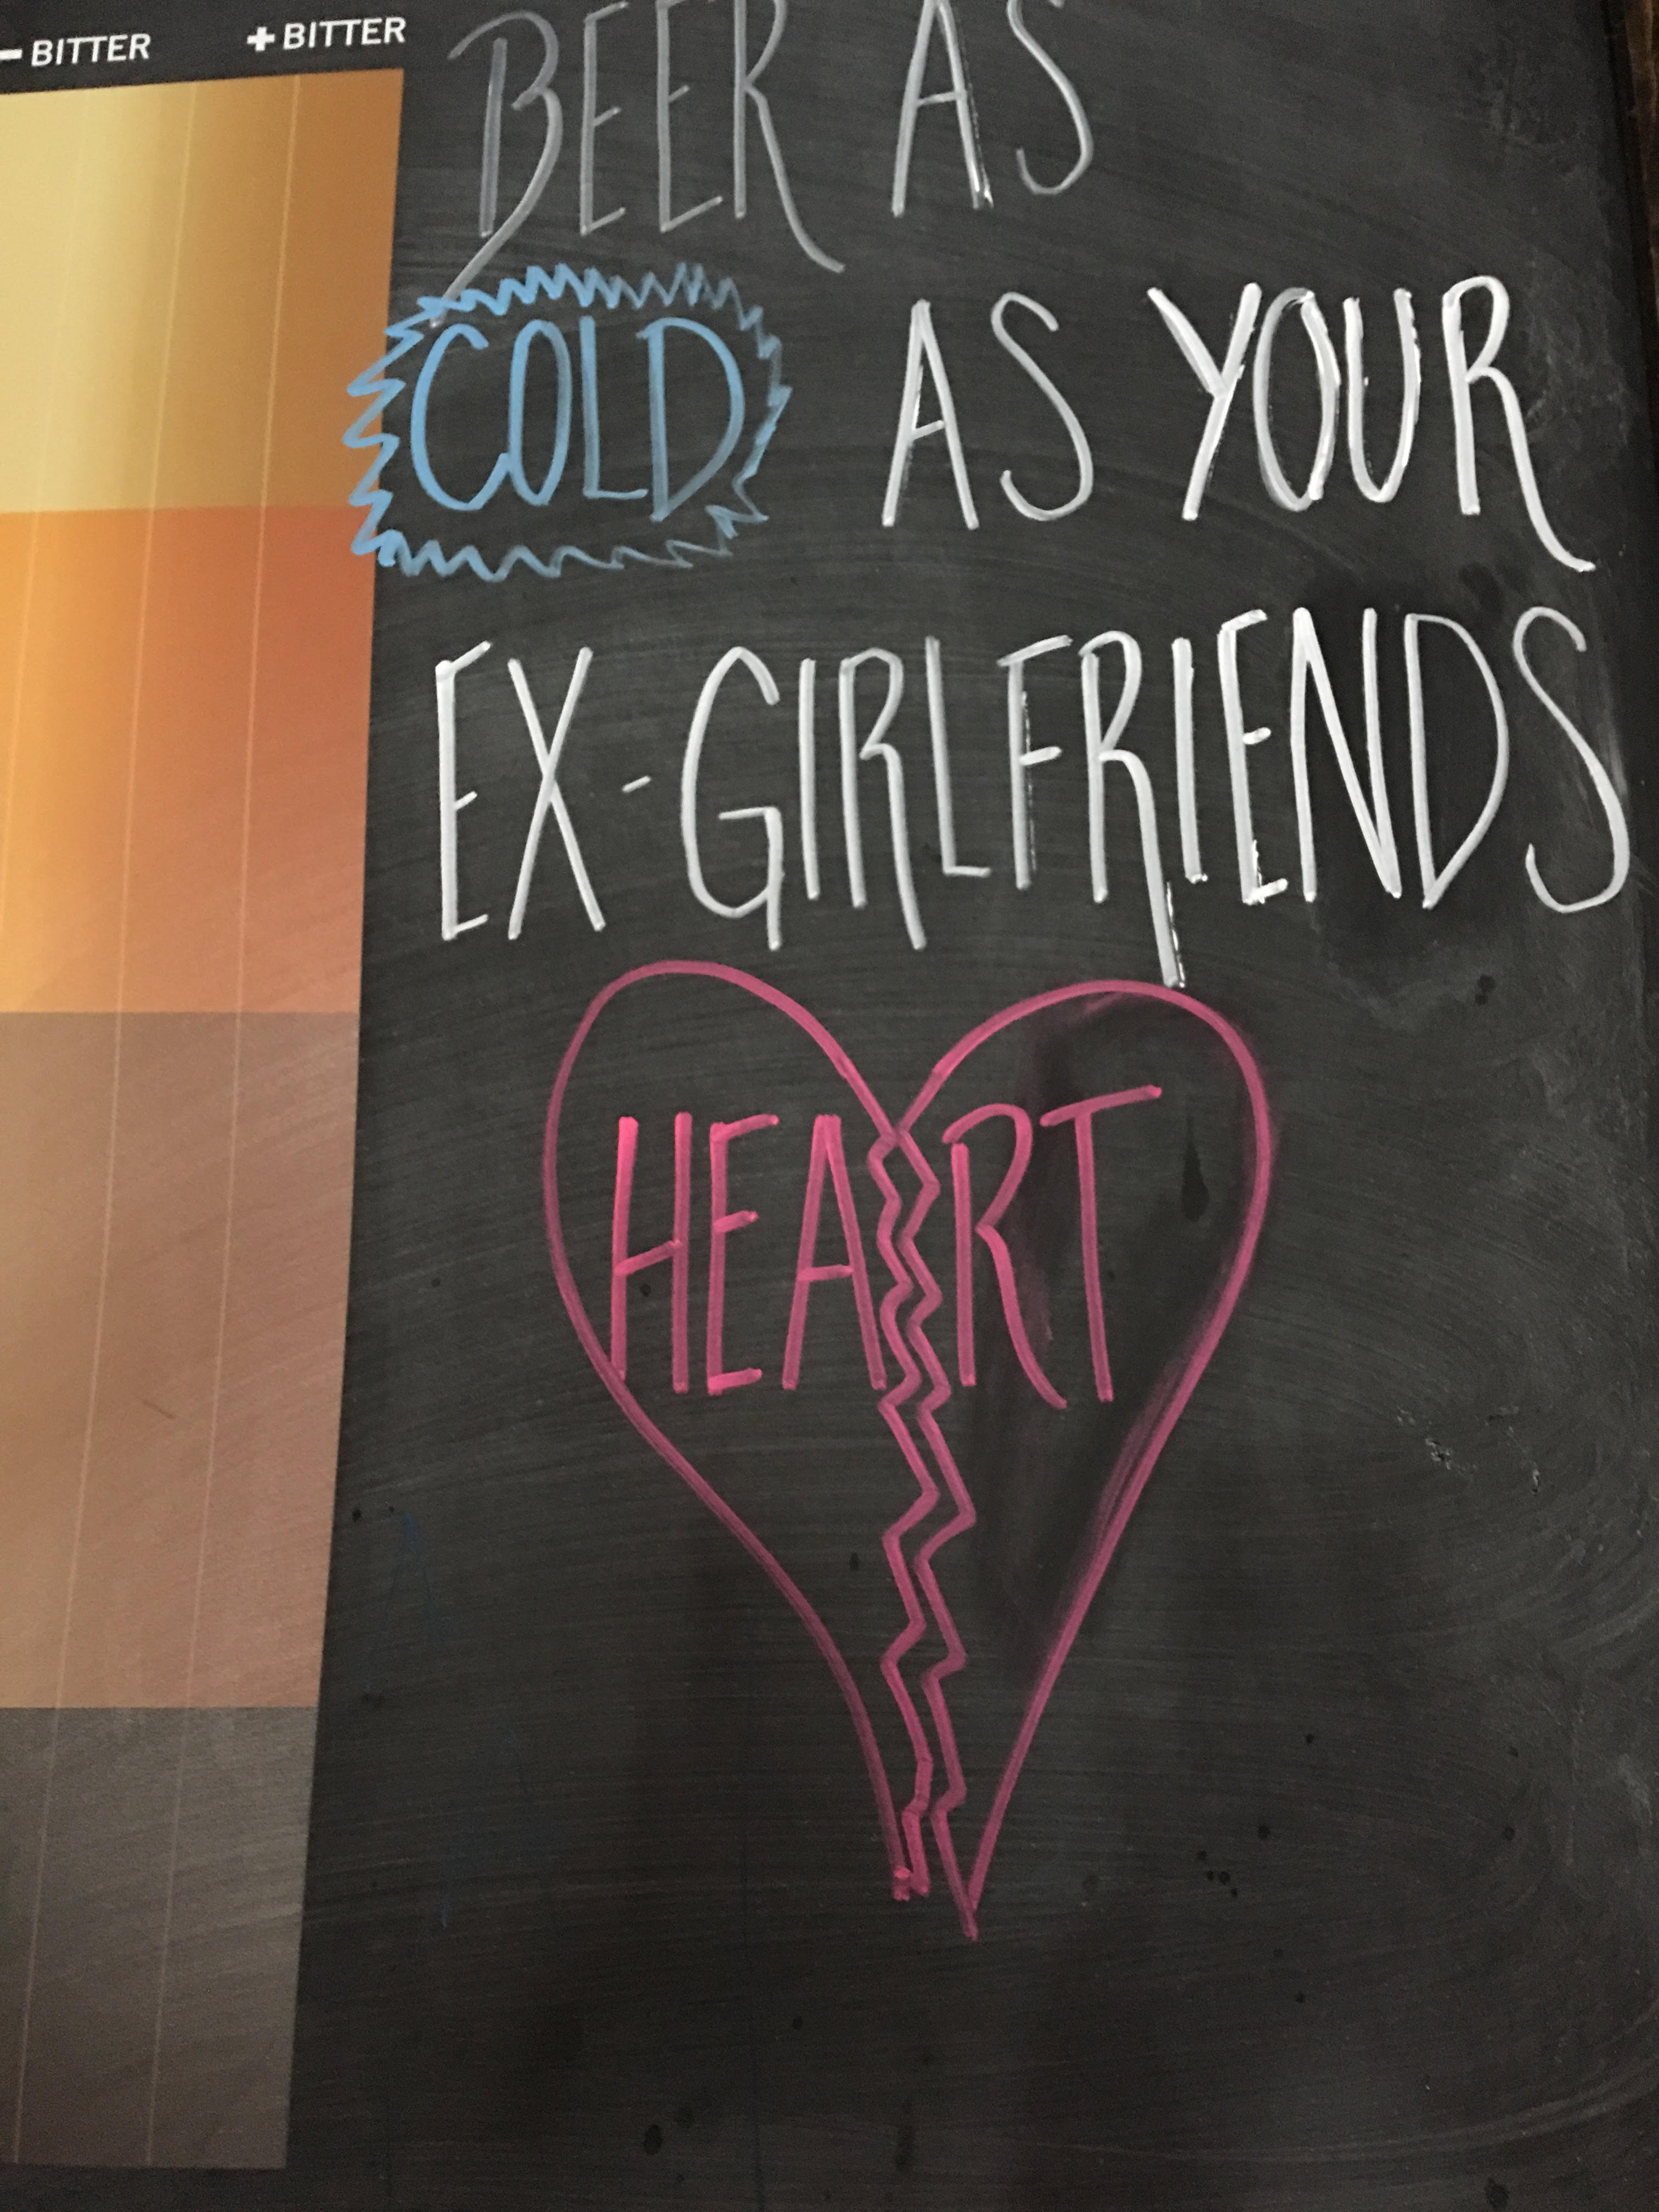 - BITTER + BITTER
BEER AS
COLD AS YOUR
EX-GIRLFRIENDS
HEART